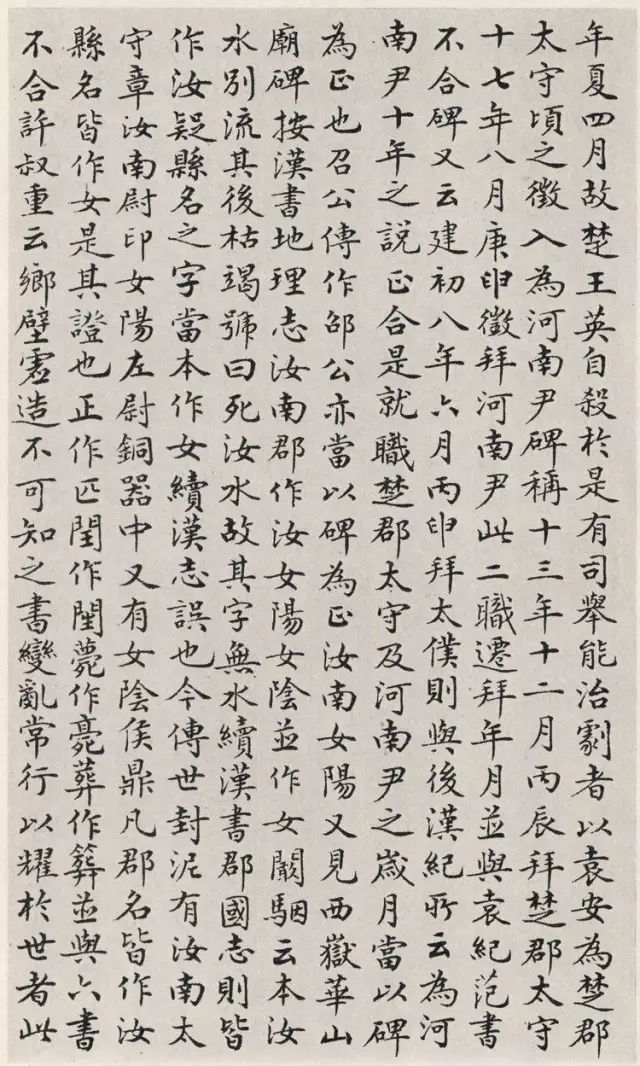 年夏四月故楚王英自殺於是有司舉能治劇者以袁安為楚郡
太守頃之徵入為河南尹碑稱十三年十二月丙辰拜楚郡太守
十七年八月庚申徵拜河南尹此二職遷拜年月並與袁紀范書
不合碑又云建初八年六月丙申拜太僕則與後漢紀所云為河
南尹十年之説正合是就職楚郡太守及河南尹之歲月當以碑
為正也召公傳作邵公亦當以碑為正汝南女陽又見西嶽華山
廟碑按漢書地理志汝南郡作汝女陽女陰並作女闞駰云本汝
水別流其後枯竭號曰死汝水故其字無水續漢書郡國志則皆
作汝疑縣名之字當本作女續漢志誤也今傳世封泥有汝南太
守章汝南尉印女陽左尉銅器中又有女陰侯鼎凡郡名皆作汝
縣名皆作女是其證也正作匹閏作閠薨作薧葬作簳並與六書
不合許叔重云鄉壁虛造不可知之書變亂常行以耀於世者此